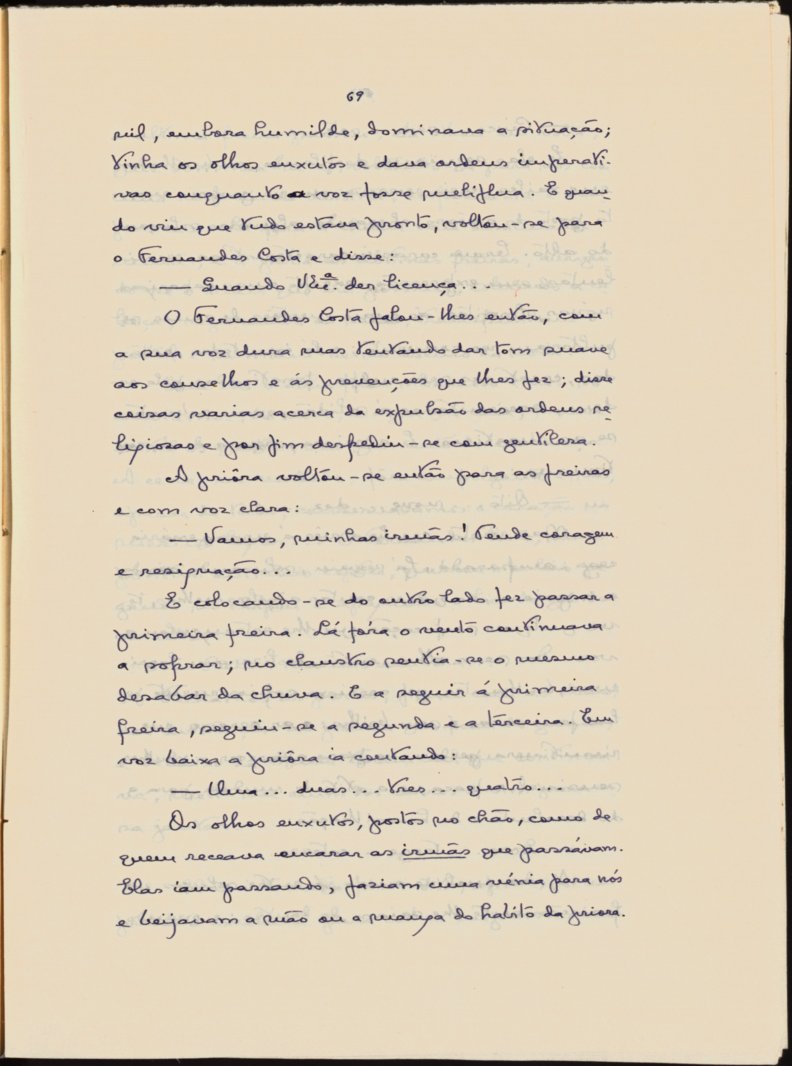 69
nil, embora humilde, dominava a situação;
tinha os olhos enxutos e dava ordens imperati-
vas conquanto a voz fosse meliflua. E quan-
do viu que tudo estava pronto, voltou-se para
o Fernandes Costa e disse:
— Quando VExª. der licença...
O Fernandes Costa falou-lhes então, com
a sua voz dura mas tentando dar tom suave
aos conselhos e ás prevenções que lhes fez; disse
coisas varias acerca da expulsão das ordens re-
ligiosas e por fim despediu-se com gentilesa.
A priôra voltou-se então para as freiras
e com voz clara:
— Vamos, minhas irmãs! Tende coragem
e resignação...
E colocando-se do outro lado fez passar a
primeira freira. Lá fóra o vento continuava
a soprar; no claustro sentia-se o mesmo
desabar da chuva. E a seguir á primeira
freira, seguiu-se a segunda e a terceira. Em
voz baixa a priôra ia contando:
— Uma... duas... tres... quatro...
Os olhos enxutos, postos no chão, como de
quem receava encarar as irmãs que passávam.
Elas iam passando, faziam uma vénia para nós
e beijavam a mão ou a manga do habito da priora.